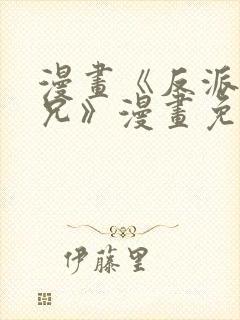 漫畫《反派
兄》漫畫免
伊藤里